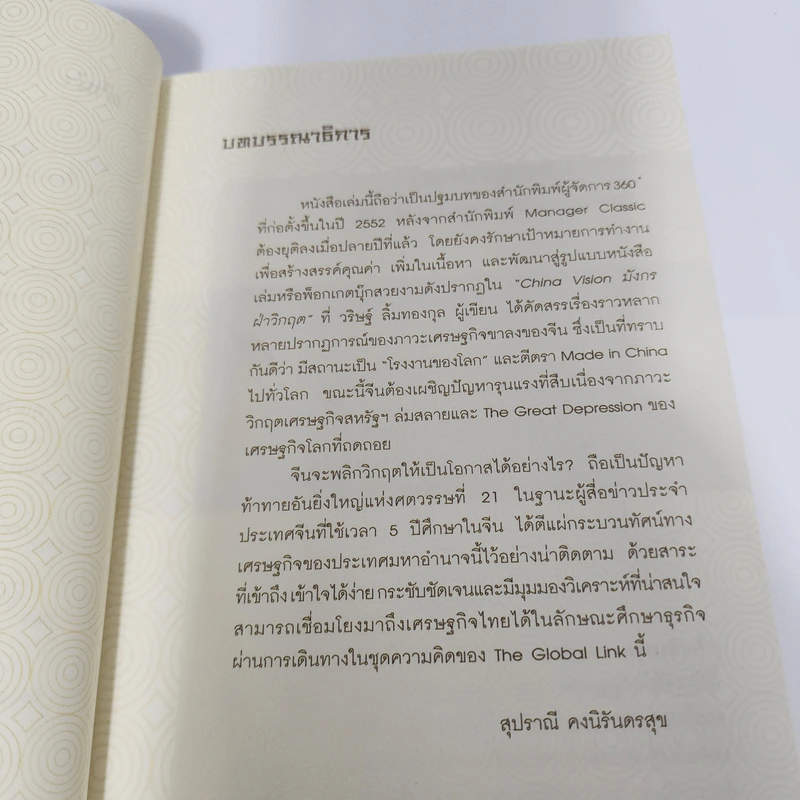 บทบรรณาธิการ
หนังสือเล่มนี้ถือว่าเป็นปฐมบทของสำนักพิมพ์ผู้จัดการ 360°
ที่ก่อตั้งขึ้นในปี 2552 หลังจากสำนักพิมพ์ Manager Classic
ต้องยุติลงเมื่อปลายปีที่แล้ว โดยยังคงรักษาเป้าหมายการทำงาน
เพื่อสร้างสรรค์คุณค่า เพิ่มในเนื้อหา และพัฒนาสู่รูปแบบหนังสือ
เล่มหรือพ็อกเกตบุ๊กสวยงามดังปรากฏใน "China Vision มังกร
ฝ่าวิกฤต" ที่ วริษฐ์ ลิ้มทองกุล ผู้เขียน ได้คัดสรรเรื่องราวหลาก
หลายปรากฏการณ์ของภาวะเศรษฐกิจขาลงของจีน ซึ่งเป็นที่ทราบ
กันดีว่า มีสถานะเป็น "โรงงานของโลก" และตีตรา Made in China
ไปทั่วโลก ขณะนี้จีนต้องเผชิญปัญหารุนแรงที่สืบเนื่องจากภาวะ
วิกฤตเศรษฐกิจสหรัฐฯ ล่มสลายและ The Great Depression ของ
เศรษฐกิจโลกที่ถดถอย
จีนจะพลิกวิกฤตให้เป็นโอกาสได้อย่างไร? ถือเป็นปัญหา
ท้าทายอันยิ่งใหญ่แห่งศตวรรษที่ 21 ในฐานะผู้สื่อข่าวประจำ
ประเทศจีนที่ใช้เวลา 5 ปีศึกษาในจีน ได้ตีแผ่กระบวนทัศน์ทาง
เศรษฐกิจของประเทศมหาอำนาจนี้ไว้อย่างน่าติดตาม ด้วยสาระ
ที่เข้าถึง เข้าใจได้ง่าย กระชับชัดเจนและมีมุมมองวิเคราะห์ที่น่าสนใจ
สามารถเชื่อมโยงมาถึงเศรษฐกิจไทยได้ในลักษณะศึกษาธุรกิจ
ผ่านการเดินทางในชุดความคิดของ The Global Link นี้
สุปราณี คงนิรันดรสุข